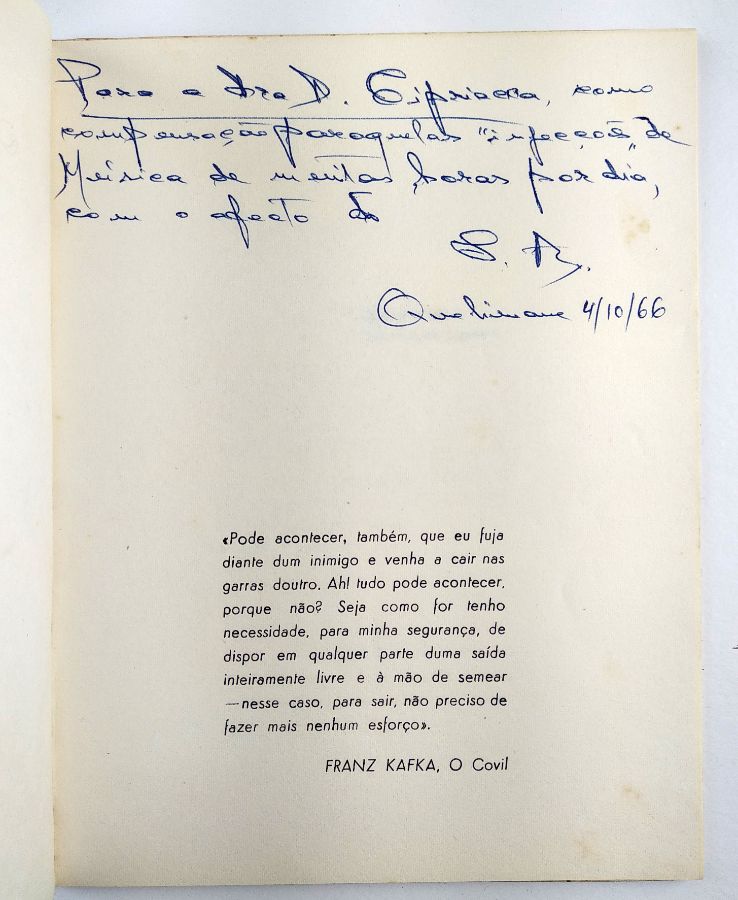 Para a Dra D. Cipriana, como
compensação para aquelas "infecções" de
Música de muitas horas por dia,
com o afecto do
Quelimane 4/10/66
«Pode acontecer, também, que eu fuja
diante dum inimigo e venha a cair nas
garras doutro. Ah! tudo pode acontecer,
porque não? Seja como for tenho
necessidade, para minha segurança, de
dispor em qualquer parte duma saída
inteiramente livre e à mão de semear
—nesse caso, para sair, não preciso de
fazer mais nenhum esforço».
FRANZ KAFKA, O Covil